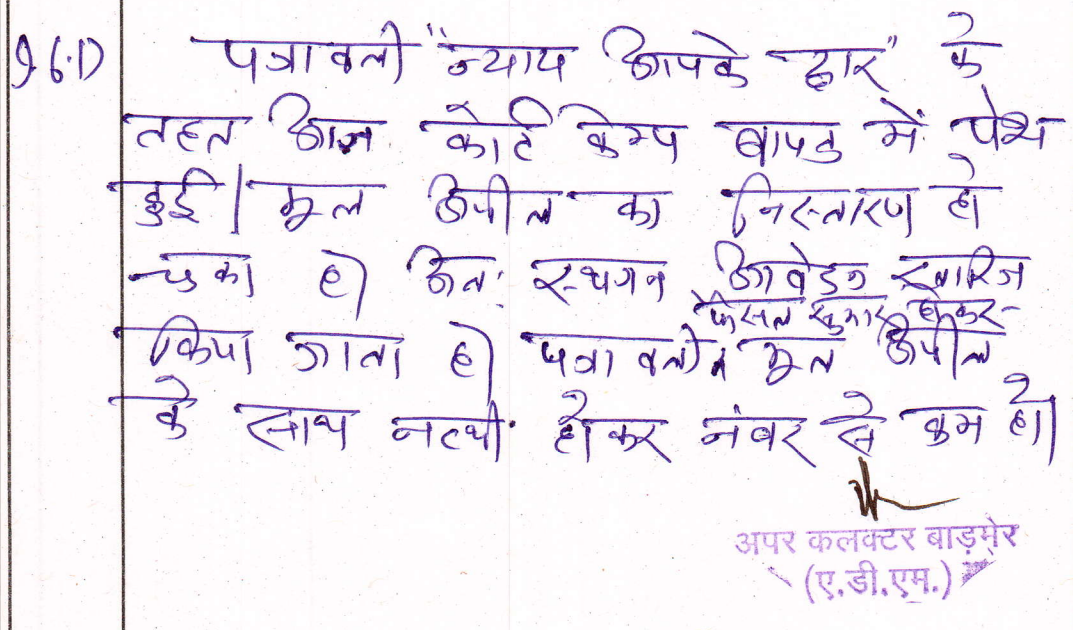 पत्रावली "न्याय आपके द्वार" के
तहत आज कोर्ट केम्प बायतु में पेश
हुई। मूल अपील का निस्तारण हो
चुका है। अतः स्थगन आवेदन खारिज
फैसल शुमार होकर
किया जाता है। पत्रावली मूल अपील
के साथ नत्थी होकर नंबर से कम हो।
अपर कलक्टर बाड़मेर
(ए.डी.एम.)